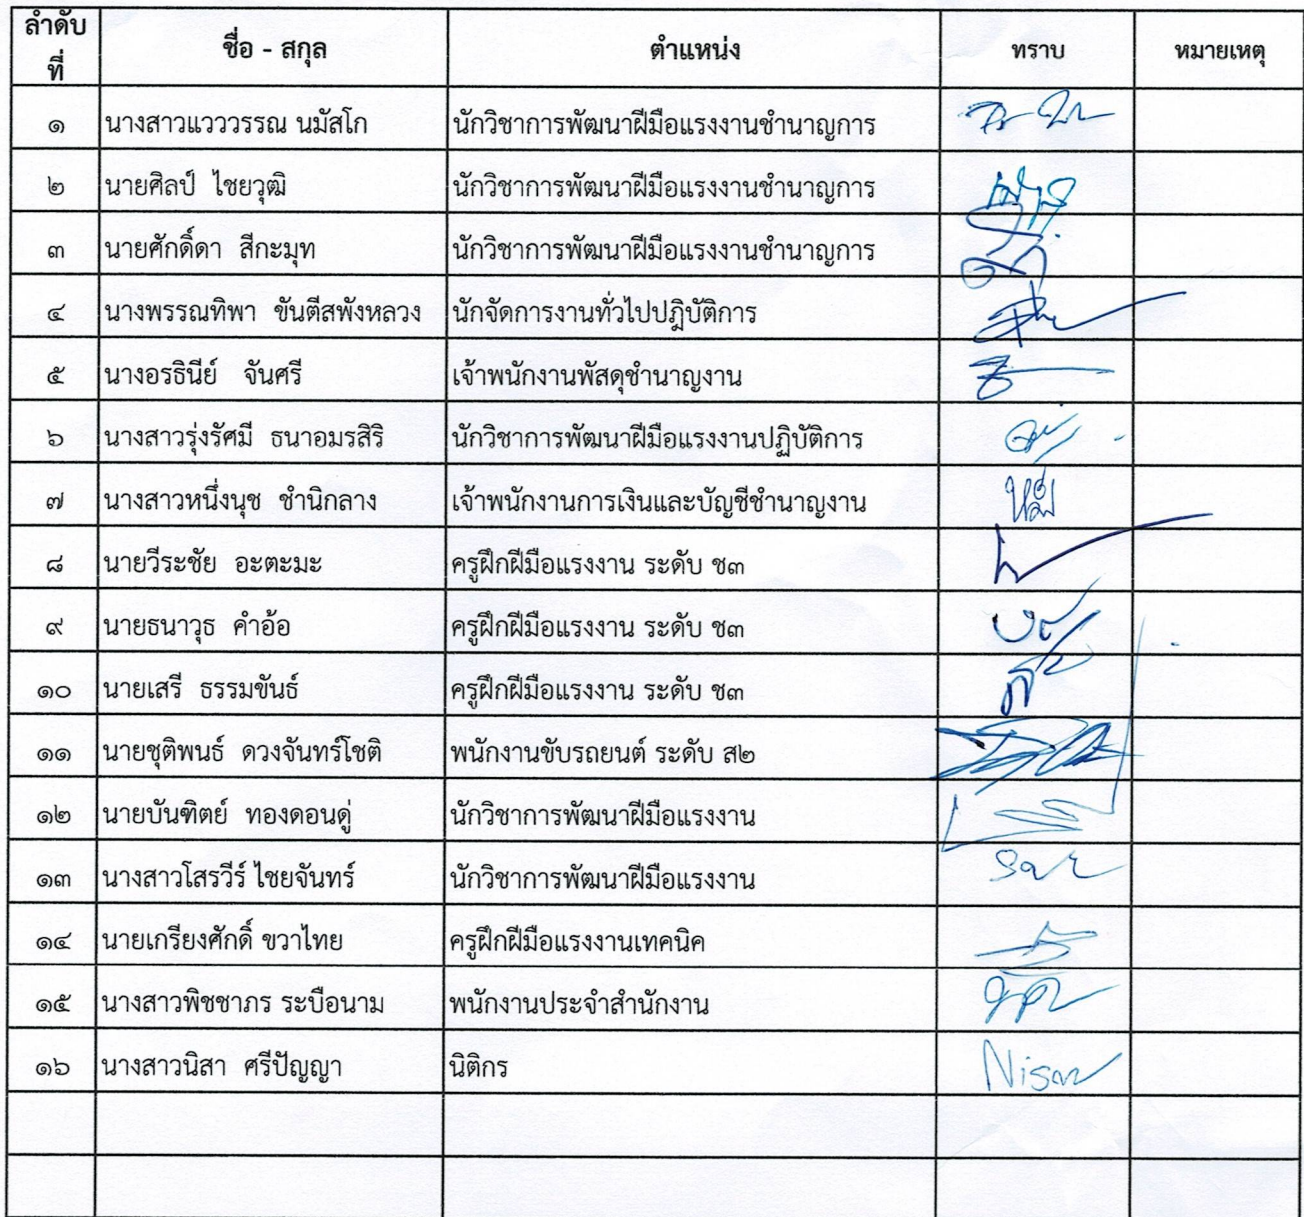 ลำดับ
ที่ ชื่อ - สกุล ตำแหน่ง ทราบ หมายเหตุ
๑ นางสาวแวววรรณ นมัสโก นักวิชาการพัฒนาฝีมือแรงงานชำนาญการ
๒ นายศิลป์ ไชยวุฒิ นักวิชาการพัฒนาฝีมือแรงงานชำนาญการ
๓ นายศักดิ์ดา สีกะมุท นักวิชาการพัฒนาฝีมือแรงงานชำนาญการ
๔ นางพรรณทิพา ขันตีสพังหลวง นักจัดการงานทั่วไปปฏิบัติการ
๕ นางอรธินีย์ จันศรี เจ้าพนักงานพัสดุชำนาญงาน
๖ นางสาวรุ่งรัศมี ธนาอมรสิริ นักวิชาการพัฒนาฝีมือแรงงานปฏิบัติการ
๗ นางสาวหนึ่งนุช ชำนิกลาง เจ้าพนักงานการเงินและบัญชีชำนาญงาน
๘ นายวีระชัย อะตะมะ ครูฝึกฝีมือแรงงาน ระดับ ช๓
๙ นายธนาวุธ คำอ้อ ครูฝึกฝีมือแรงงาน ระดับ ช๓
๑๐ นายเสรี ธรรมขันธ์ ครูฝึกฝีมือแรงงาน ระดับ ช๓
๑๑ นายชุติพนธ์ ดวงจันทร์โชติ พนักงานขับรถยนต์ ระดับ ส๒
๑๒ นายบันฑิตย์ ทองดอนดู่ นักวิชาการพัฒนาฝีมือแรงงาน
๑๓ นางสาวโสรวีร์ ไชยจันทร์ นักวิชาการพัฒนาฝีมือแรงงาน
๑๔ นายเกรียงศักดิ์ ขวาไทย ครูฝึกฝีมือแรงงานเทคนิค
๑๕ นางสาวพิชชาภร ระบือนาม พนักงานประจำสำนักงาน
๑๖ นางสาวนิสา ศรีปัญญา นิติกร Nisa